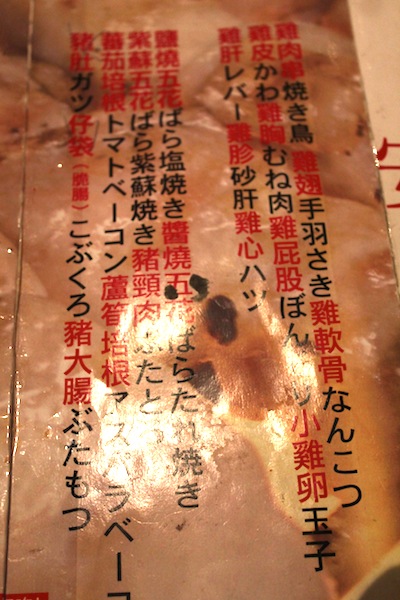 雞肉串焼き鳥 雞翅手羽さき雞軟骨なんこつ
雞皮かわ雞胸むね肉雞屁股ぼん 小雞卵玉子
雞肝レバー雞胗砂肝雞心ハツ
鹽燒五花ばら塩焼き醬燒五花ばらたれ焼き
紫蘇五花ばら紫蘇焼き豬頸肉ぶたとろ
蕃茄培根トマトベーコン蘆筍培根アス ラベーコ
豬肚ガツ仔袋（脆腸）こぶくろ豬大腸ぶたもつ